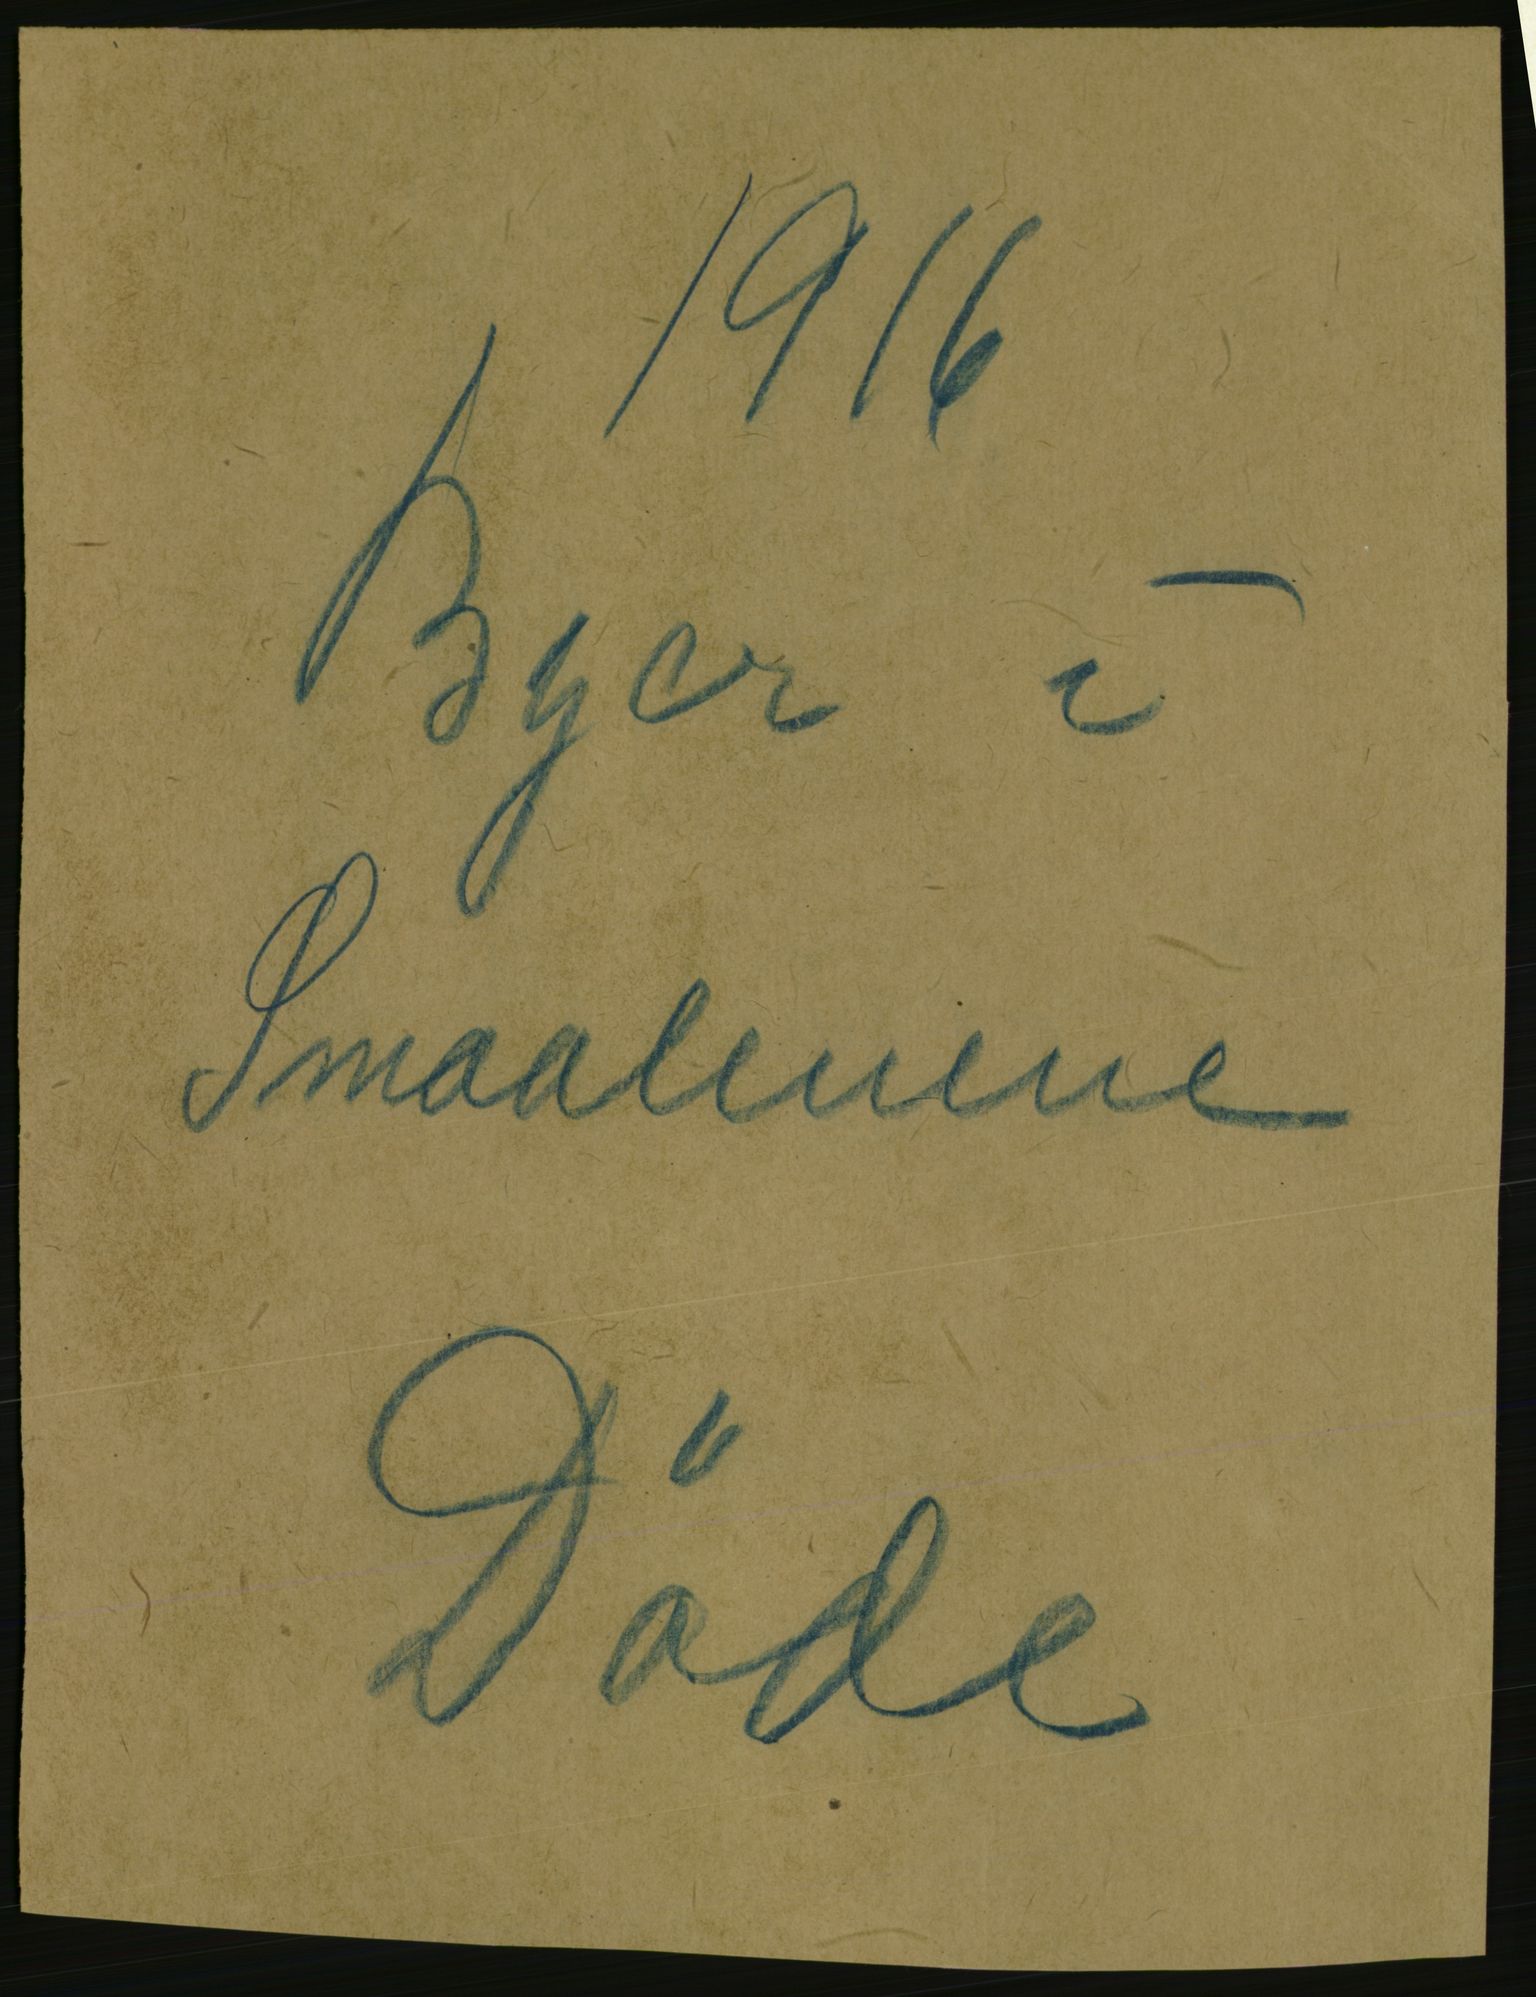 1916
Byer i
Smaalenene
Döde